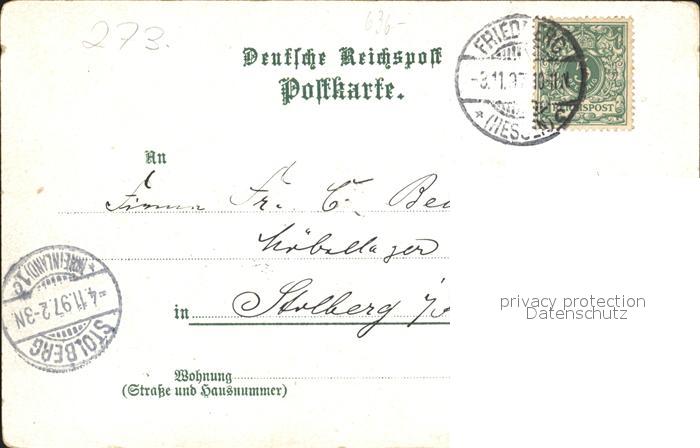 273.
636-
Deutsche Reichspost
Postkarte.
FRIEDBERG
-3.11.97. 10-11.V.
* (HESSEN)
REICHSPOST
An
Firma Fr. C.
Möbellager
in Stolberg
STOLBERG
-4.11.97.2-3N
* (RHEINLAND)
privacy protection
Datenschutz
Wohnung
(Straße und Hausnummer)